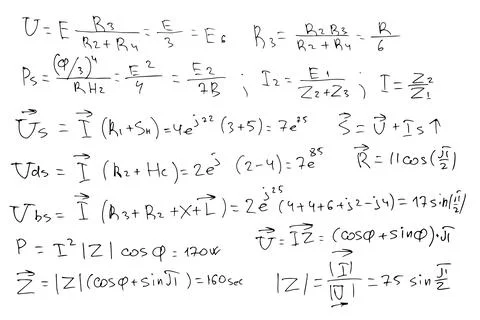 U = E R3/(R2 + R4) = E/3 = E6   R3 = R2 R3/(R2 + R4) = R/6
Ps = (φ/3)^4/(R Hz) = E^2/4 = E2/7B ; I2 = E1/(Z2 + Z3) ; I = Z2/Z1
U⃗s = I⃗ (R1 + SH) = 4e^j22 (3+5) = 7e^25   S⃗ = U⃗ + I s ↑
U⃗ds = I⃗ (R2 + Hc) = 2e^j (2-4) = 7e^85   R⃗ = 11cos(π/2)
U⃗bs = I⃗ (R3 + R2 + X + I⃗) = 2e^j25 (4+4+6+j2-j4) = 17 sin(π/2)
P = I^2 |Z| cosφ = 170W   U⃗ = I⃗Z⃗ = (cosφ + sinφ)·π
Z⃗ = |Z| (cosφ + sinπ) = 160sec   |Z| = |I⃗|/|U⃗| = 75 sin π/2